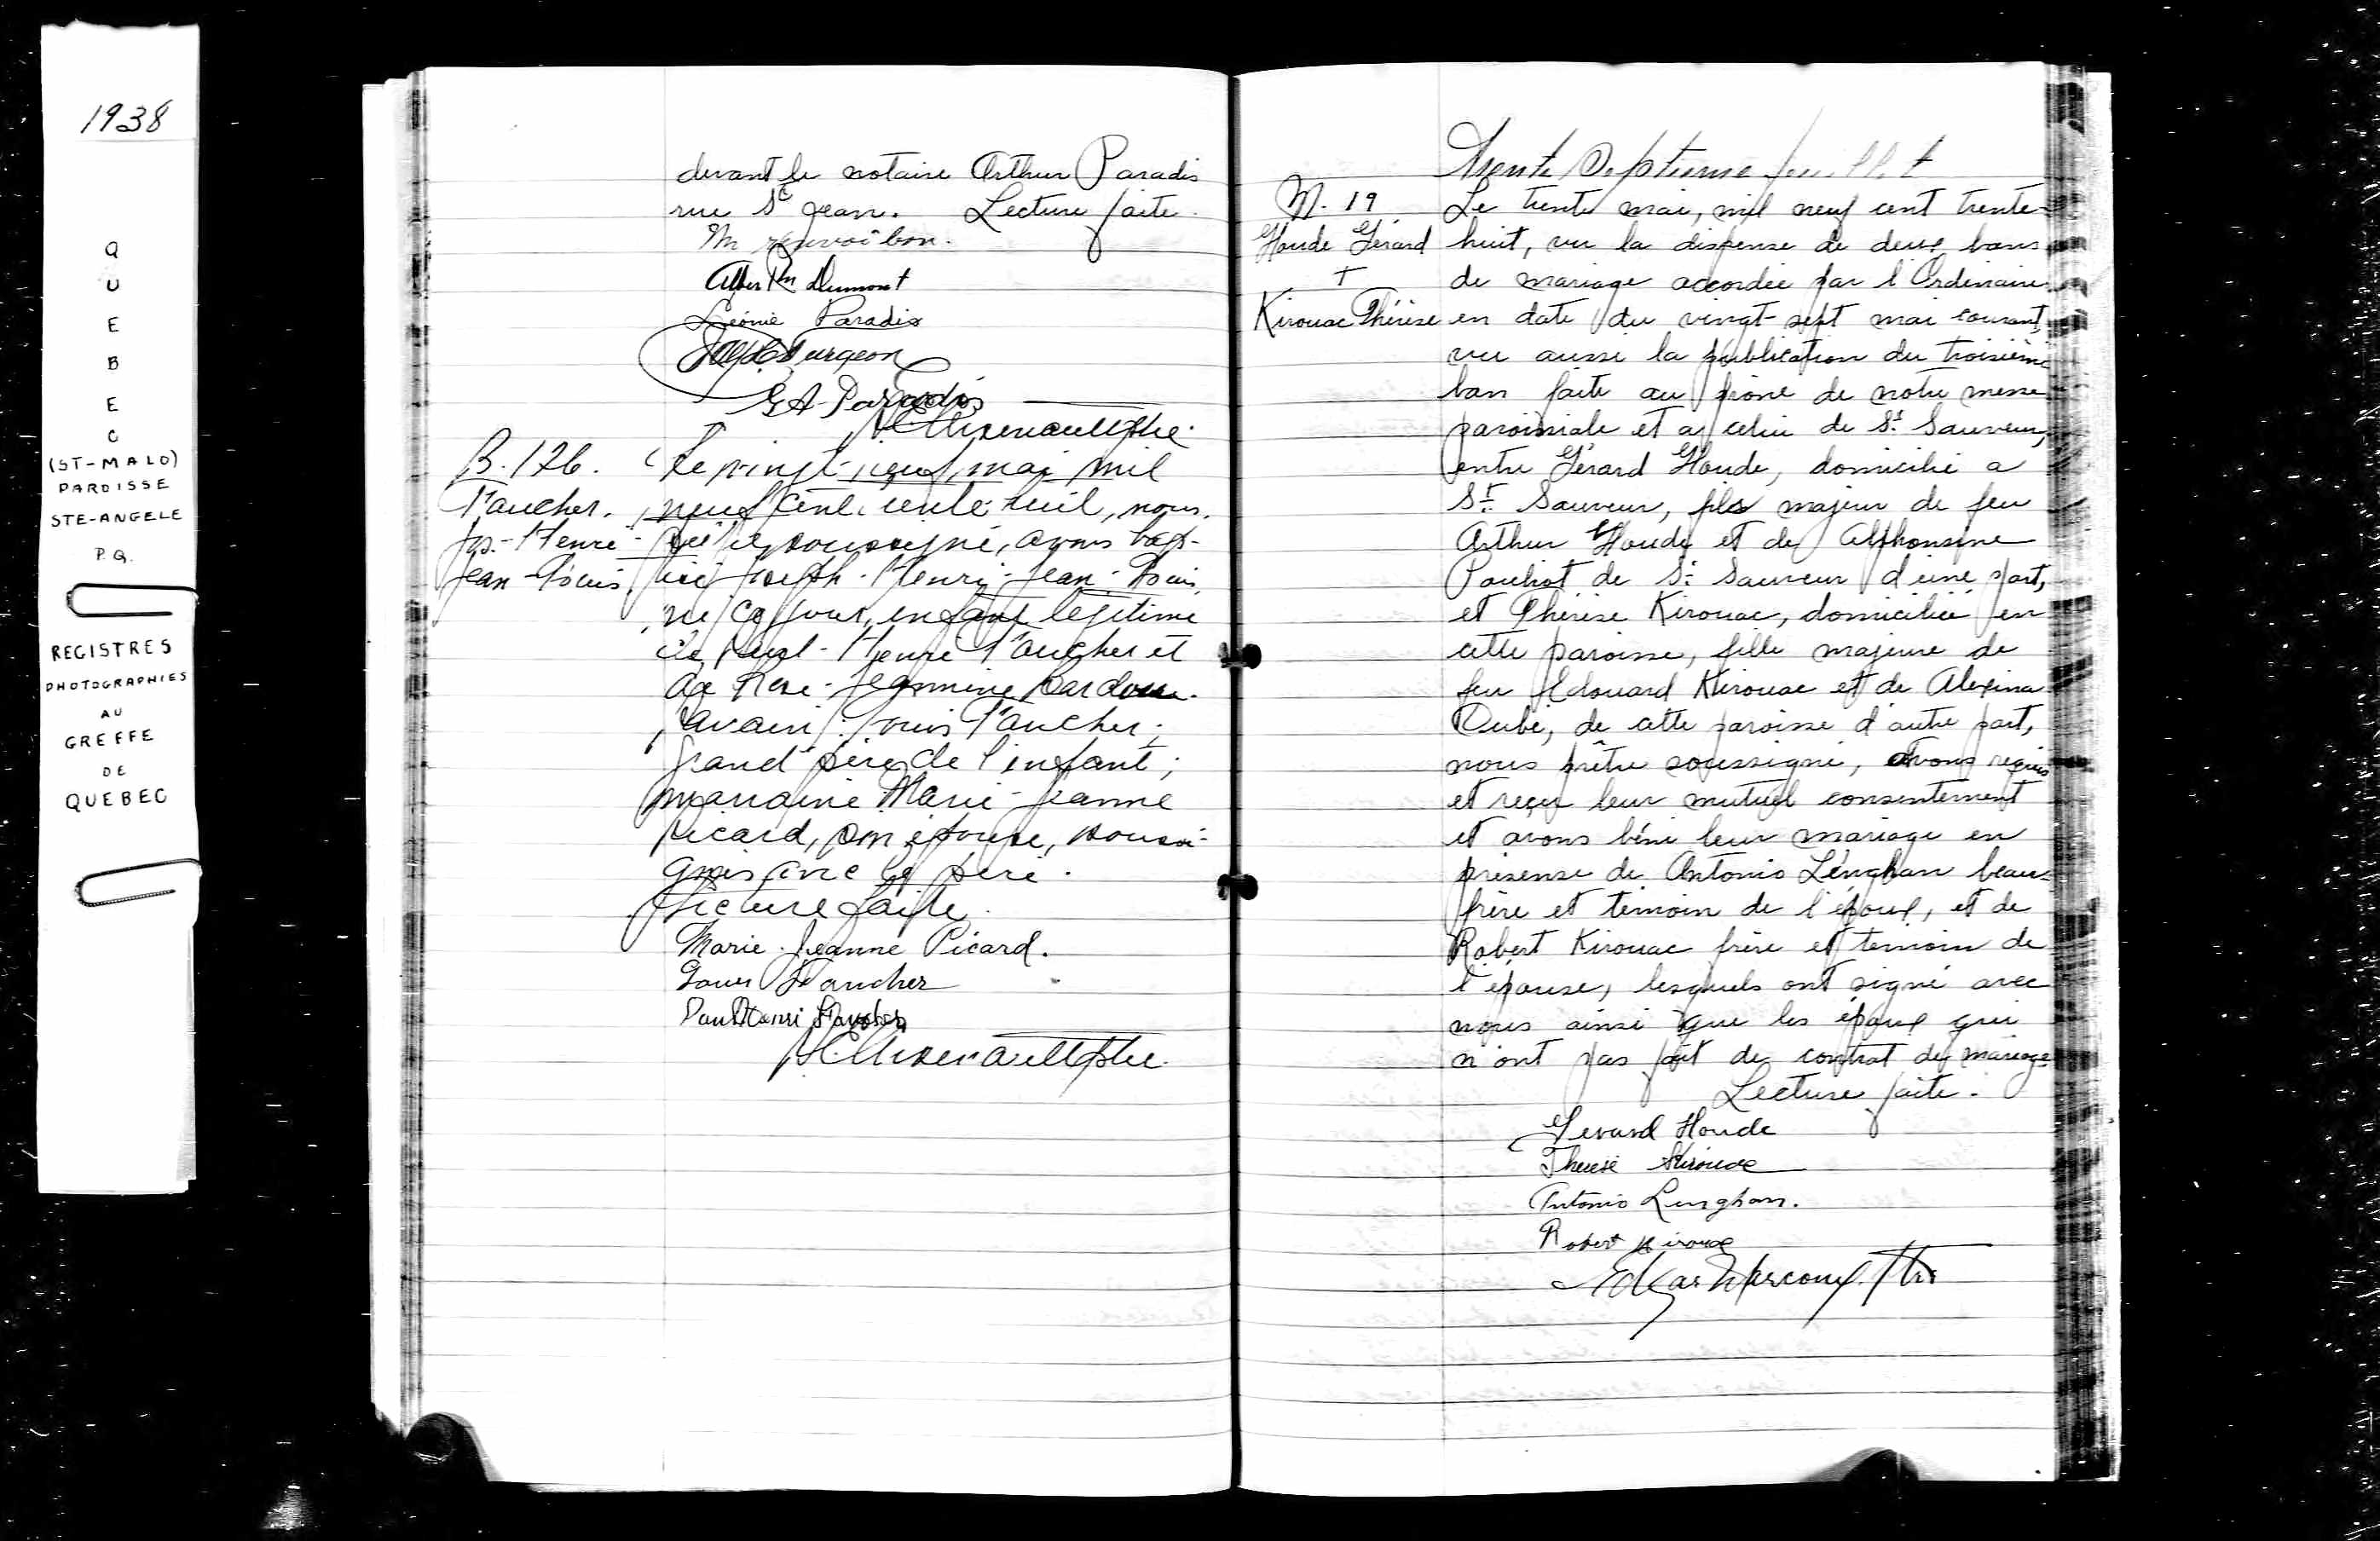 1938
Q
U
E
B
E
C
(ST-MALO)
PAROISSE
STE-ANGELE
P.Q.
REGISTRES
PHOTOGRAPHIES
AU
GREFFE
DE
QUEBEC
devant le notaire Arthur Paradis
rue St Jean. Lecture faite.
Un renvoi bon.
Dumont
Léonie Paradis
Turgeon
G A Paradis
B. 126. Le vingt-neuf mai mil
Faucher. neuf cent trente-huit, nous,
Jos.-Henri- prêtre soussigné, avons bap-
Jean-Louis. tisé Joseph-Henri-Jean-Louis,
né ce jour, enfant légitime
de Paul-Henri Faucher et
de Rose-Jeannine
Parrain: Louis Faucher,
grand'père de l'enfant;
marraine Marie-Jeanne
Picard, son épouse, soussi-
gnés avec le père.
Lecture faite.
Marie-Jeanne Picard.
Louis Faucher
Paul Henri Faucher
ptre.
Trente Septieme feuillet
M. 19 Le trente mai, mil neuf cent trente-
Houde Gérard huit, vu la dispense de deux bans
+ de mariage accordée par l'Ordinaire
Kirouac Thérèse en date du vingt-sept mai courant,
vu aussi la publication du troisième
ban faite au prône de notre messe
paroissiale et a celui de St Sauveur,
entre Gérard Houde, domicilié a
St Sauveur, fils majeur de feu
Arthur Houde et de Alphonsine
Pouliot de St Sauveur d'une part,
et Thérèse Kirouac, domiciliée en
cette paroisse, fille majeure de
feu Edouard Kirouac et de Alexina
Dubé, de cette paroisse d'autre part,
nous prêtre soussigné, avons requis
et reçu leur mutuel consentement
et avons béni leur mariage en
présense de Antonio Lenghan beau-
frère et témoin de l'époux, et de
Robert Kirouac frère et temoin de
l'épouse, lesquels ont signé avec
nous ainsi que les époux qui
n'ont pas fait de contrat de mariage.
Lecture faite.
Gérard Houde
Thérèse Kirouac
Antonio Lenghan.
Robert Kirouac
Edgar Ptre